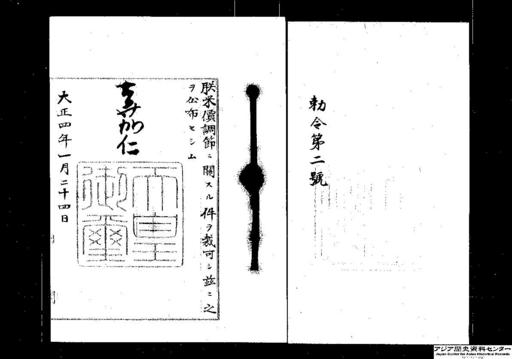 勅令第二號
朕米價調節ニ關スル件ヲ裁可シ茲ニ之
ヲ公布セシム
嘉仁
天皇
御璽
大正四年一月二十四日
アジア歴史資料センター
Japan Center for Asian Historical Records